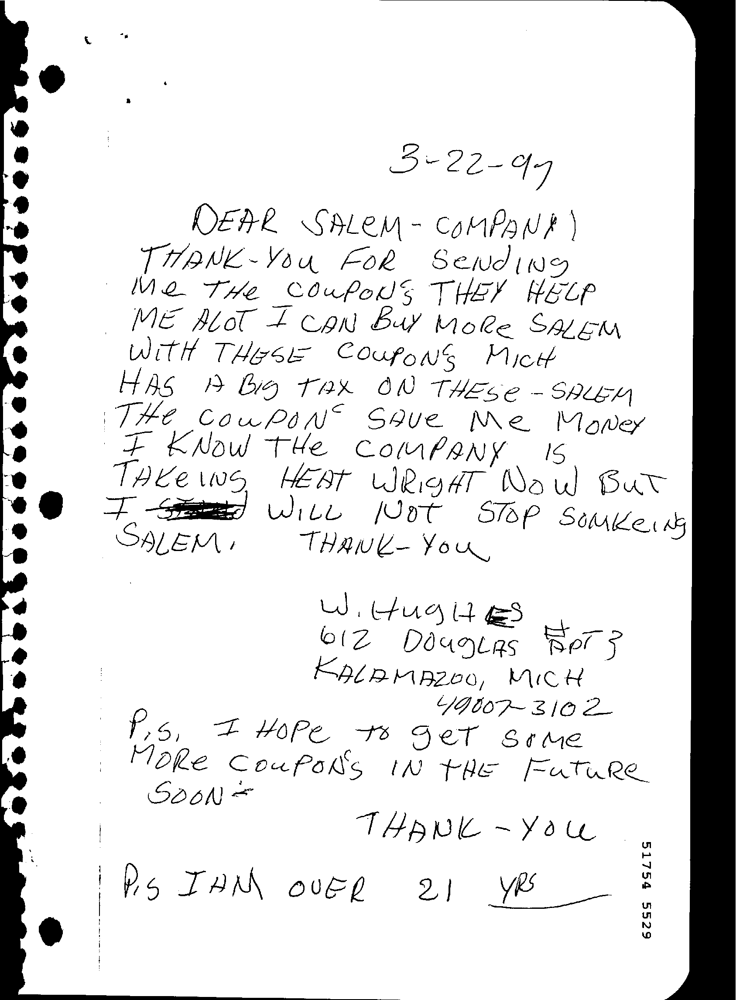 3-22-97
DEAR SALEM-COMPANY)
THANK-YOU FOR SENDING
Me THe COUPON'S THEY HELP
ME ALOT I CAN BUY MORe SALEM
WITH THESE COUPON'S MICH
HAS A BIG TAX ON THESe - SALEM
THe COUPON'S SAVe Me MONey
I KNOW THe COMPANY IS
TAKeING HEAT WRIGHT NOW BUT
I WILL NOT STOP SOMKeING
SALEM. THANK-YOU
W. HugHES
612 DOUGLAS APT 3
KALAMAZOO, MICH
49007-3102
P.S. I HOPe to geT SOMe
MORe COUPON'S IN tHE FuTuRe
SOON -
THANK-YOU
P.S I AM OVER 21 YRS
51754 5529